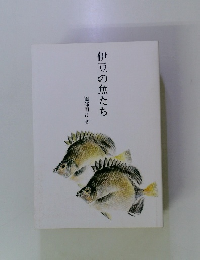 伊豆の魚たち